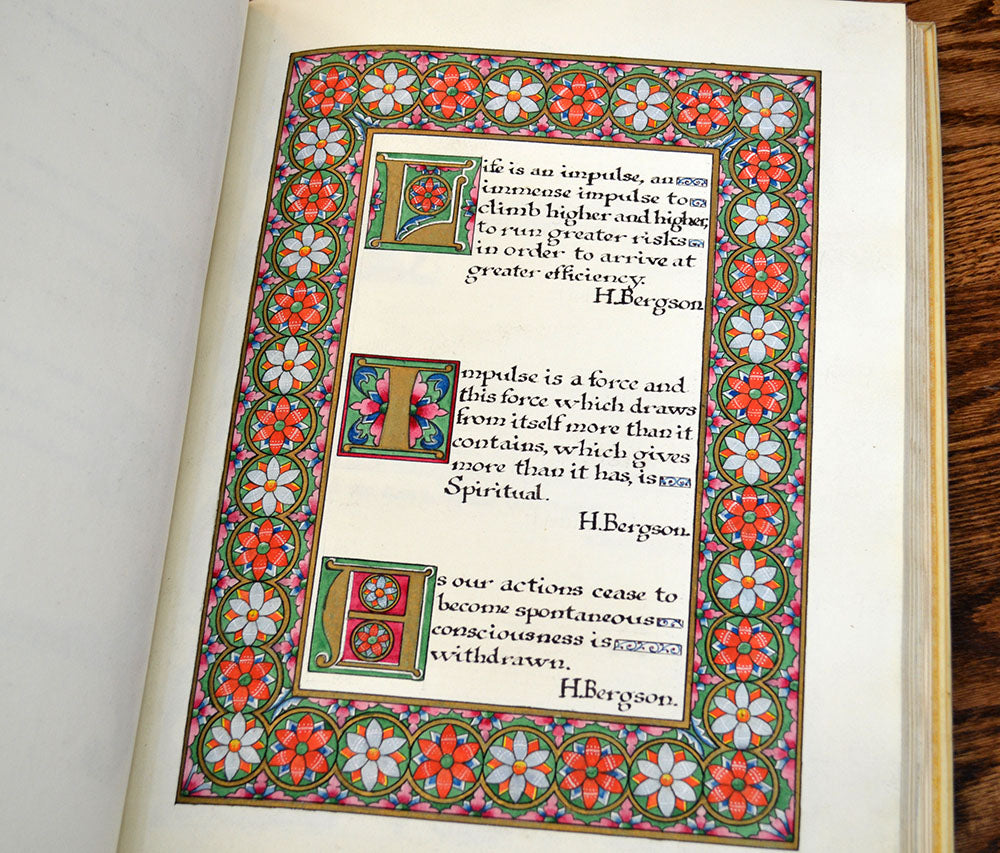 Life is an impulse, an
immense impulse to
climb higher and higher,
to run greater risks
in order to arrive at
greater efficiency.
H.Bergson
Impulse is a force and
this force which draws
from itself more than it
contains, which gives
more than it has, is
Spiritual.
H.Bergson.
As our actions cease to
become spontaneous
consciousness is
withdrawn.
H.Bergson.